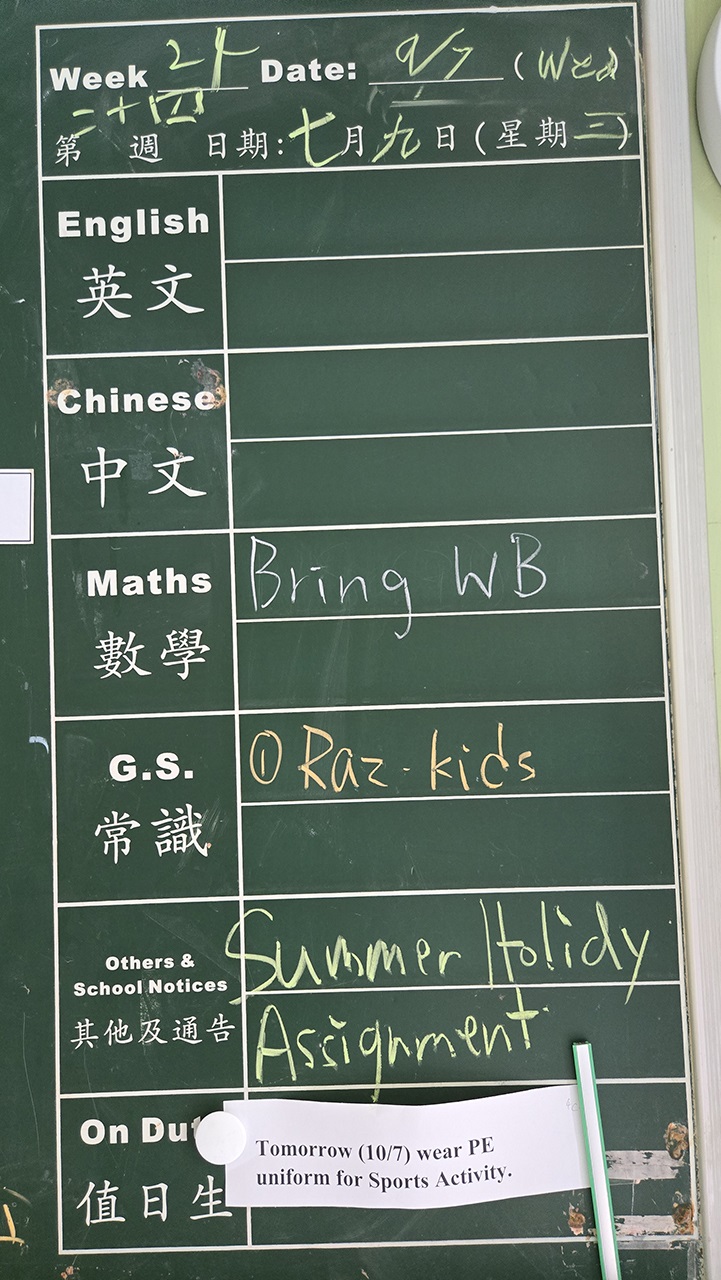 Week 24 Date: 9/7 (Wed
二十四
第 週 日期:七月九日(星期三)
English
英文
Chinese
中文
Maths Bring WB
數學
G.S. ① Raz-kids
常識
Others & Summer Holidy
School Notices
其他及通告 Assignment
On Dut
Tomorrow (10/7) wear PE
uniform for Sports Activity.
值日生